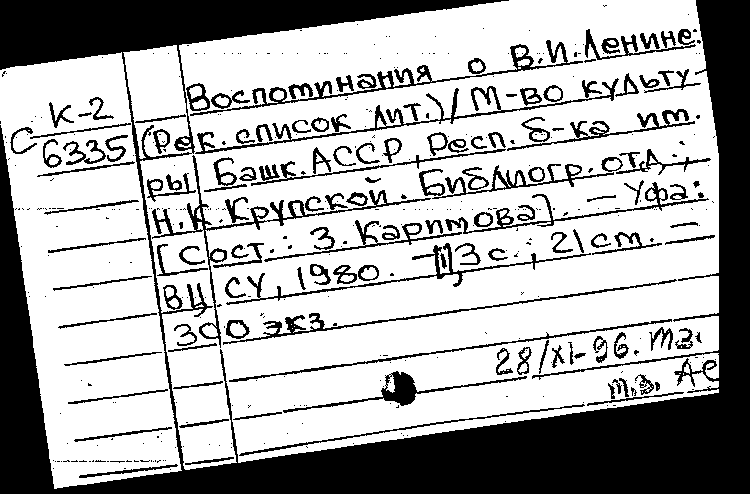 К-2
С 6335
Воспоминания о В.И.Ленине:
(Рек. список лит.) / М-во культу-
ры Башк. АССР, Респ. б-ка им.
Н.К.Крупской. Библиогр. отд.;
[Сост.: З. Каримова]. — Уфа:
ВЦ СУ, 1980. — 3 с.; 21 см. —
300 экз.
28/XI-96.